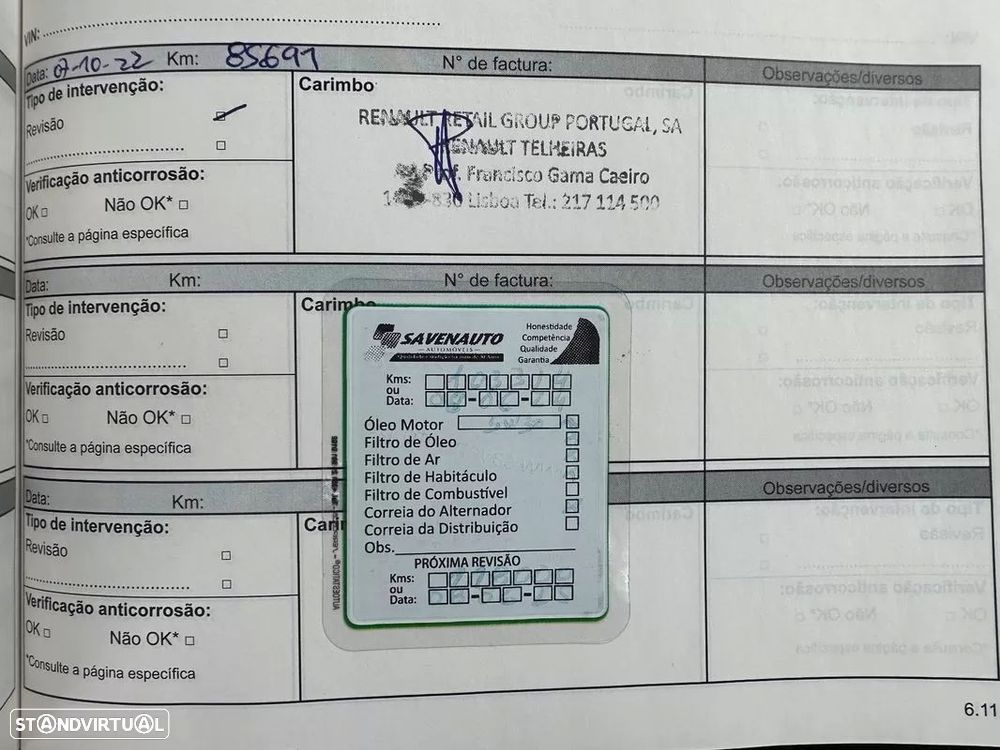 VIN:
Data: 07-10-22 Km: 85691 N° de factura: Observações/diversos
Tipo de intervenção:
Revisão
Verificação anticorrosão:
OK Não OK*
*Consulte a página específica
Carimbo
RENAULT RETAIL GROUP PORTUGAL, SA
RENAULT TELHEIRAS
Prof. Francisco Gama Caeiro
Lisboa Tel.: 217 114 500
Data: Km: N° de factura: Observações/diversos
Tipo de intervenção:
Revisão
Verificação anticorrosão:
OK Não OK*
*Consulte a página específica
Carimbo
SAVENAUTO
AUTOMÓVEIS
Honestidade
Competência
Qualidade
Garantia
Kms: 103314
ou
Data:
Óleo Motor
Filtro de Óleo
Filtro de Ar
Filtro de Habitáculo
Filtro de Combustível
Correia do Alternador
Correia da Distribuição
Obs.
PRÓXIMA REVISÃO
Kms:
ou
Data:
Data: Km: Observações/diversos
Tipo de intervenção:
Revisão
Verificação anticorrosão:
OK Não OK*
*Consulte a página específica
6.11
STANDVIRTUAL